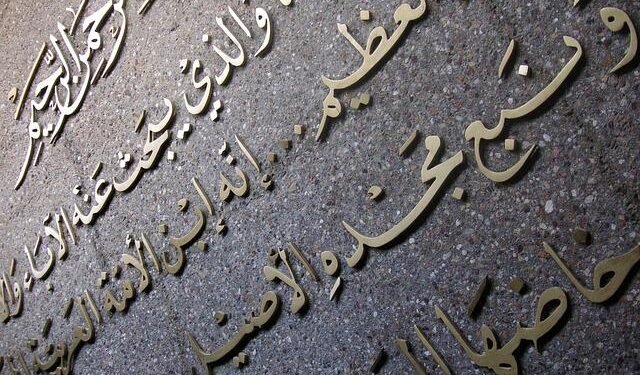 الرحيم
والذي يبحث عنه الآباء
عظيم ... إنه ابن الأمة العربية
و نبع مجده الأصيل